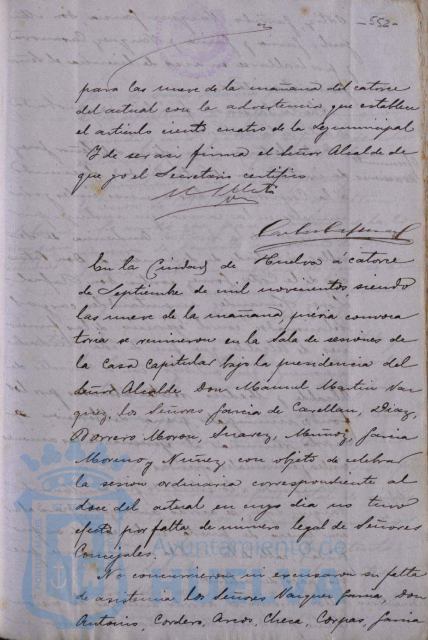 -552-
para las nueve de la mañana del catorce
del actual con la advertencia que establece
el articulo ciento cuatro de la Ley municipal
Y de ser asi firma el Señor Alcalde de
que yo el Secretario certifico
En la Ciudad de Huelva á catorce
de Septiembre de mil novecientos siendo
las nueve de la mañana prévia convoca
toria se reunieron en la Sala de sesiones de
la casa capitular bajo la presidencia del
Señor Alcalde Don Manuel Martin Vaz
quez, los Señores Garcia de Castellan, Diaz,
Borrero Moron, Suarez, Muñoz, Garcia
Moreno y Nuñez con objeto de celebrar
la sesion ordinaria correspondiente al
doce del actual en cuyo dia no tuvo
efecto por falta de número legal de Señores
Concejales.
No concurrieron ni escusaron su falta
de asistencia los Señores Vazquez Garcia, Don
Antonio, Cordero, Arcos, Checa, Corpas, Garcia
Ayuntamiento de
HUELVA